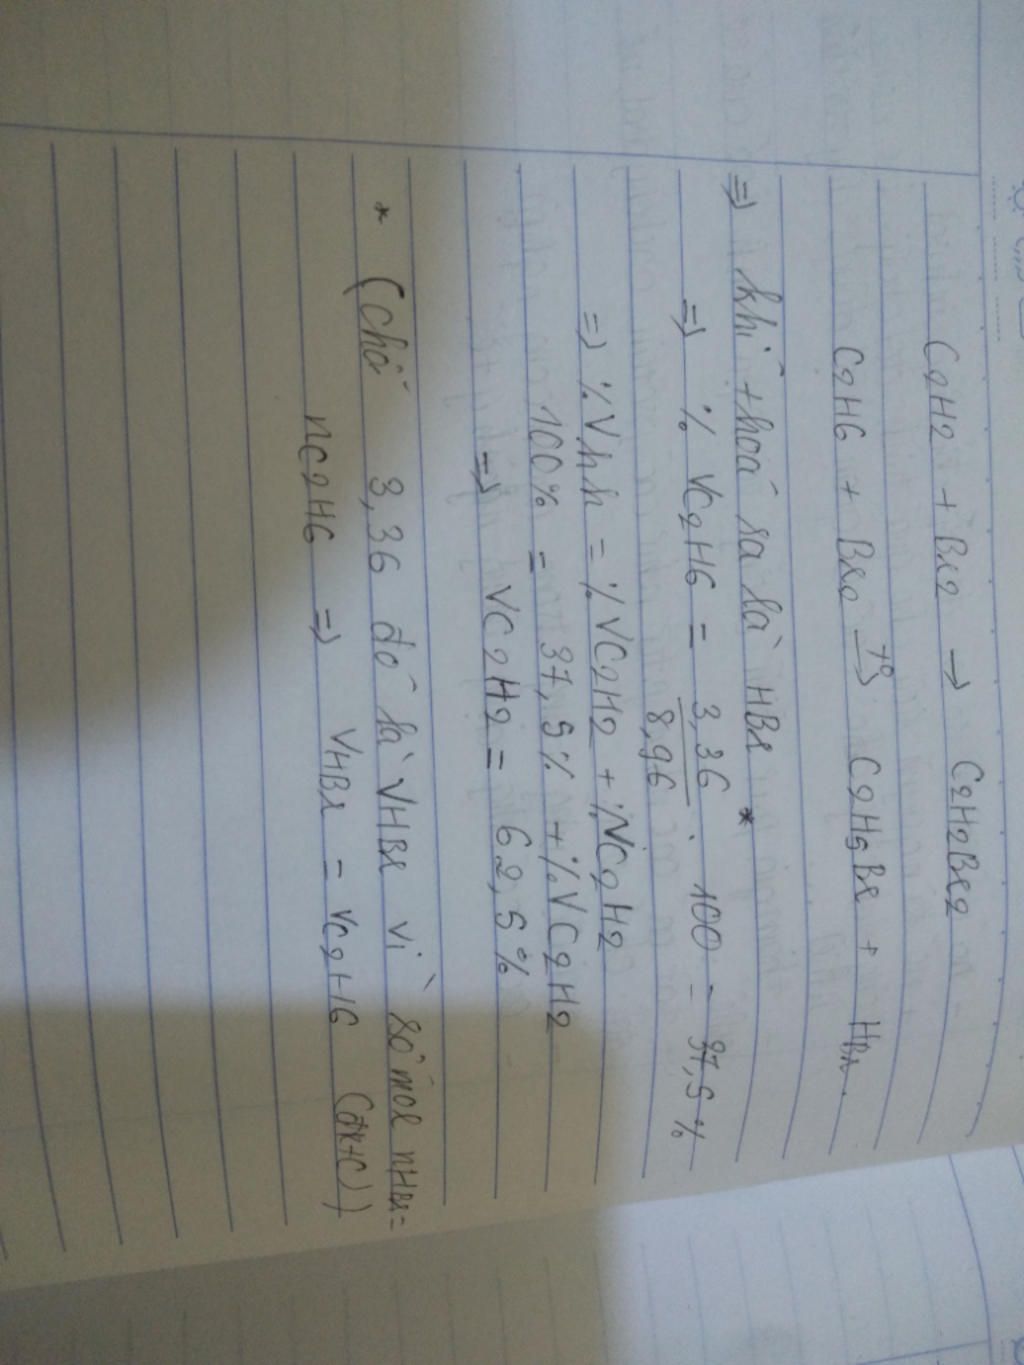 C2H2 + Br2 → C2H2Br2
C2H6 + Br2 →t° C2H5Br + HBr
=) khí thoá ra là HBr *
=) % VC2H6 = 3,36/8,96 . 100 = 37,5%
=) %Vhh = %VC2H2 + %VC2H2
100% = 37,5% + %VC2H2
=) VC2H2 = 62,5%
* (Chỗ 3,36 đó là VHBr vì số mol nHBr =
nC2H6 =) VHBr = VC2H6 (đktc))